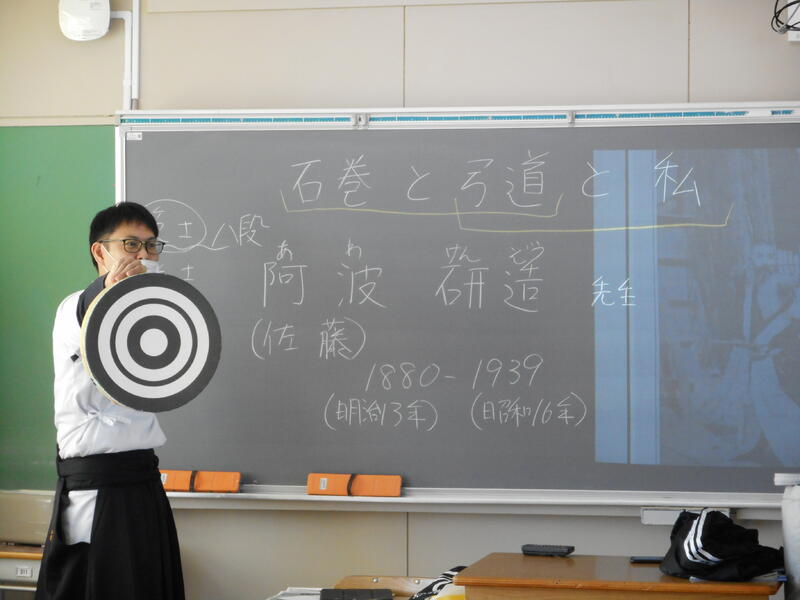 石巻と弓道と私
士 八段
士
あ わ けん ぞう
阿波 研造 先生
(佐藤)
1880-1939
(明治13年) (昭和16年)